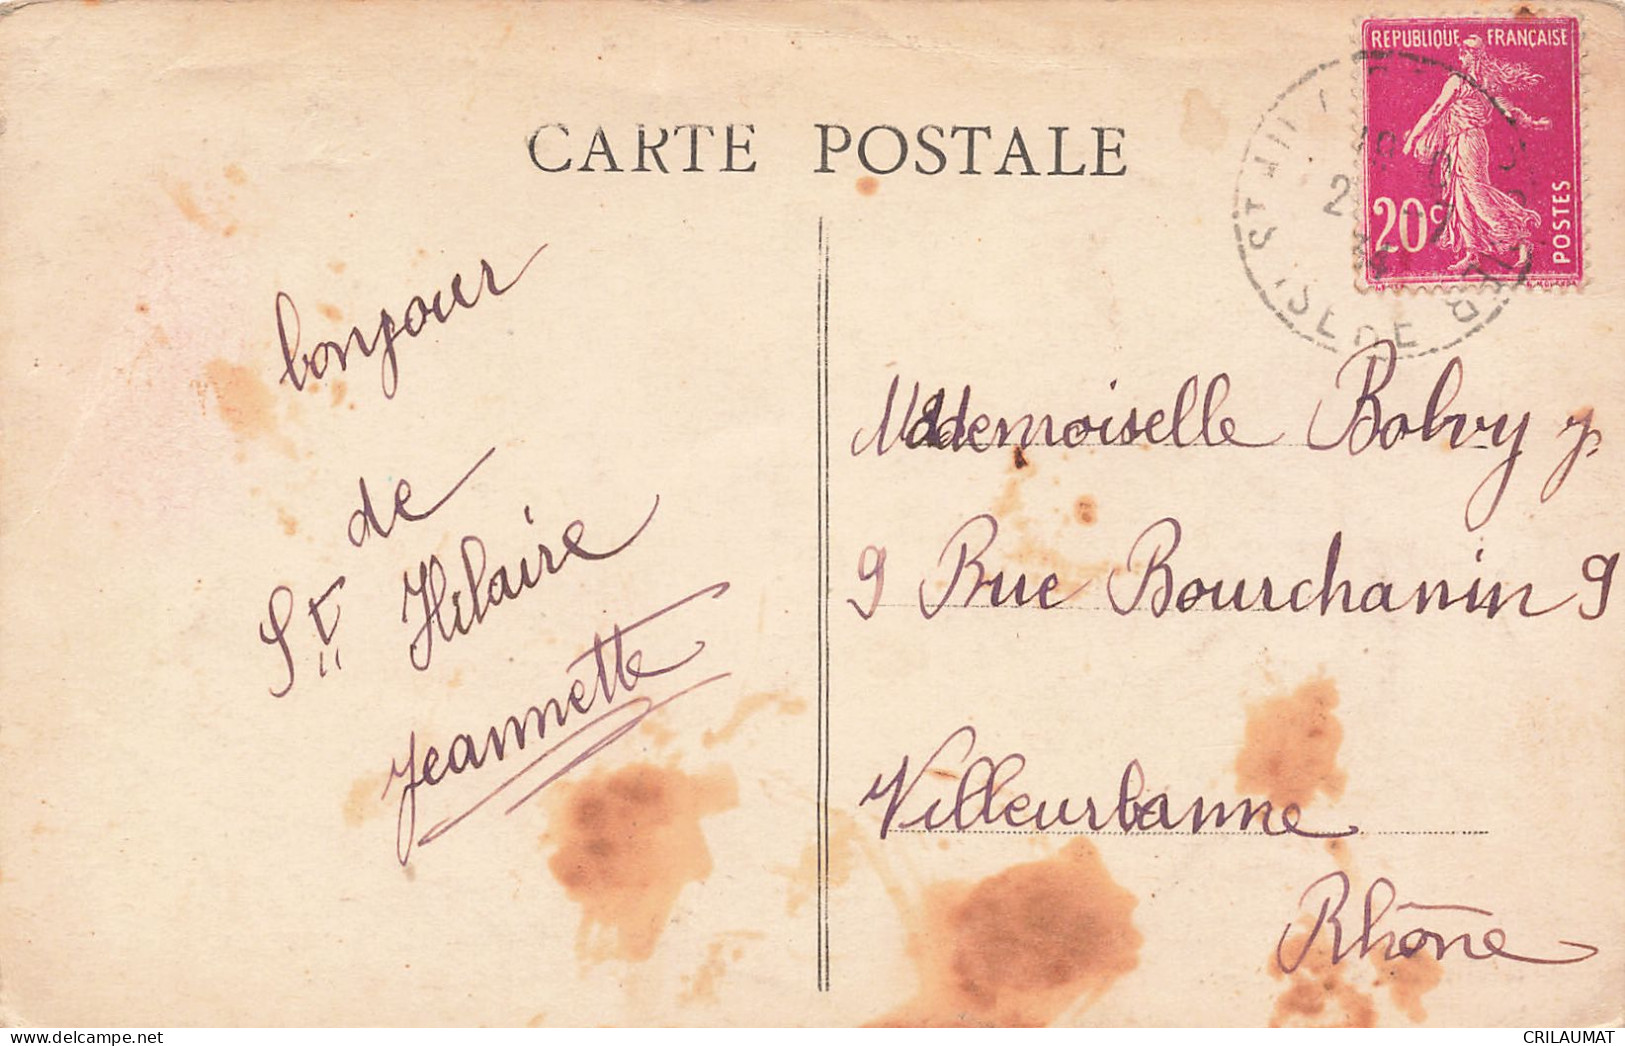 CARTE POSTALE
REPUBLIQUE FRANÇAISE
20c
POSTES
ST HIL
ISERE
bonjour
de
St Hilaire
Jeannette
Mademoiselle Bolvy J.
9 Rue Bourchanin 9
Villeurbanne
Rhône
delcampe.net
CRILAUMAT